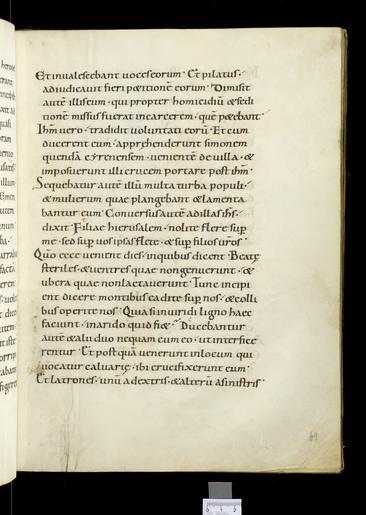 Et inualescebant uoces eorum · Et pilatus ·
adiudicauit fieri petitionē eorum · Dimisit
autē illis eum · qui propter homicidiū & sedi
tionē missus fuerat in carcerem · quē petebant ·
Ihm̄ uero · tradidit uoluntati eorū · Et cum
ducerent eum · apprehenderunt simonem
quendā cyrenensem · uenientē de uilla · &
imposuerunt illi crucem portare post ihm̄ ·
Sequebatur autē illū multa turba populi ·
& mulierum quae plangebant & lamenta
bantur eum · Conuersus autē ad illas ihs̄ ·
dixit · Filiae hierusalem · nolite flere sup
me · sed sup uos ipsas flete · & sup filios ur̄os ·
Quō ecce uenient dies · in quibus dicent · Beatę
steriles · & uentres quae non genuerunt · &
ubera quae non lactauerunt · Tunc incipi
ent dicere montibus cadite sup nos · & colli
bus operite nos · Quia si in uiridi ligno haec
faciunt · in arido quid fi& · Ducebantur
autē & alii duo nequam cum eo · ut interfice
rentur · Et postquā uenerunt in locum qui
uocatur caluarię · ibi crucifixerunt eum ·
Et latrones · unū a dextris · & alterū a sinistris ·
69